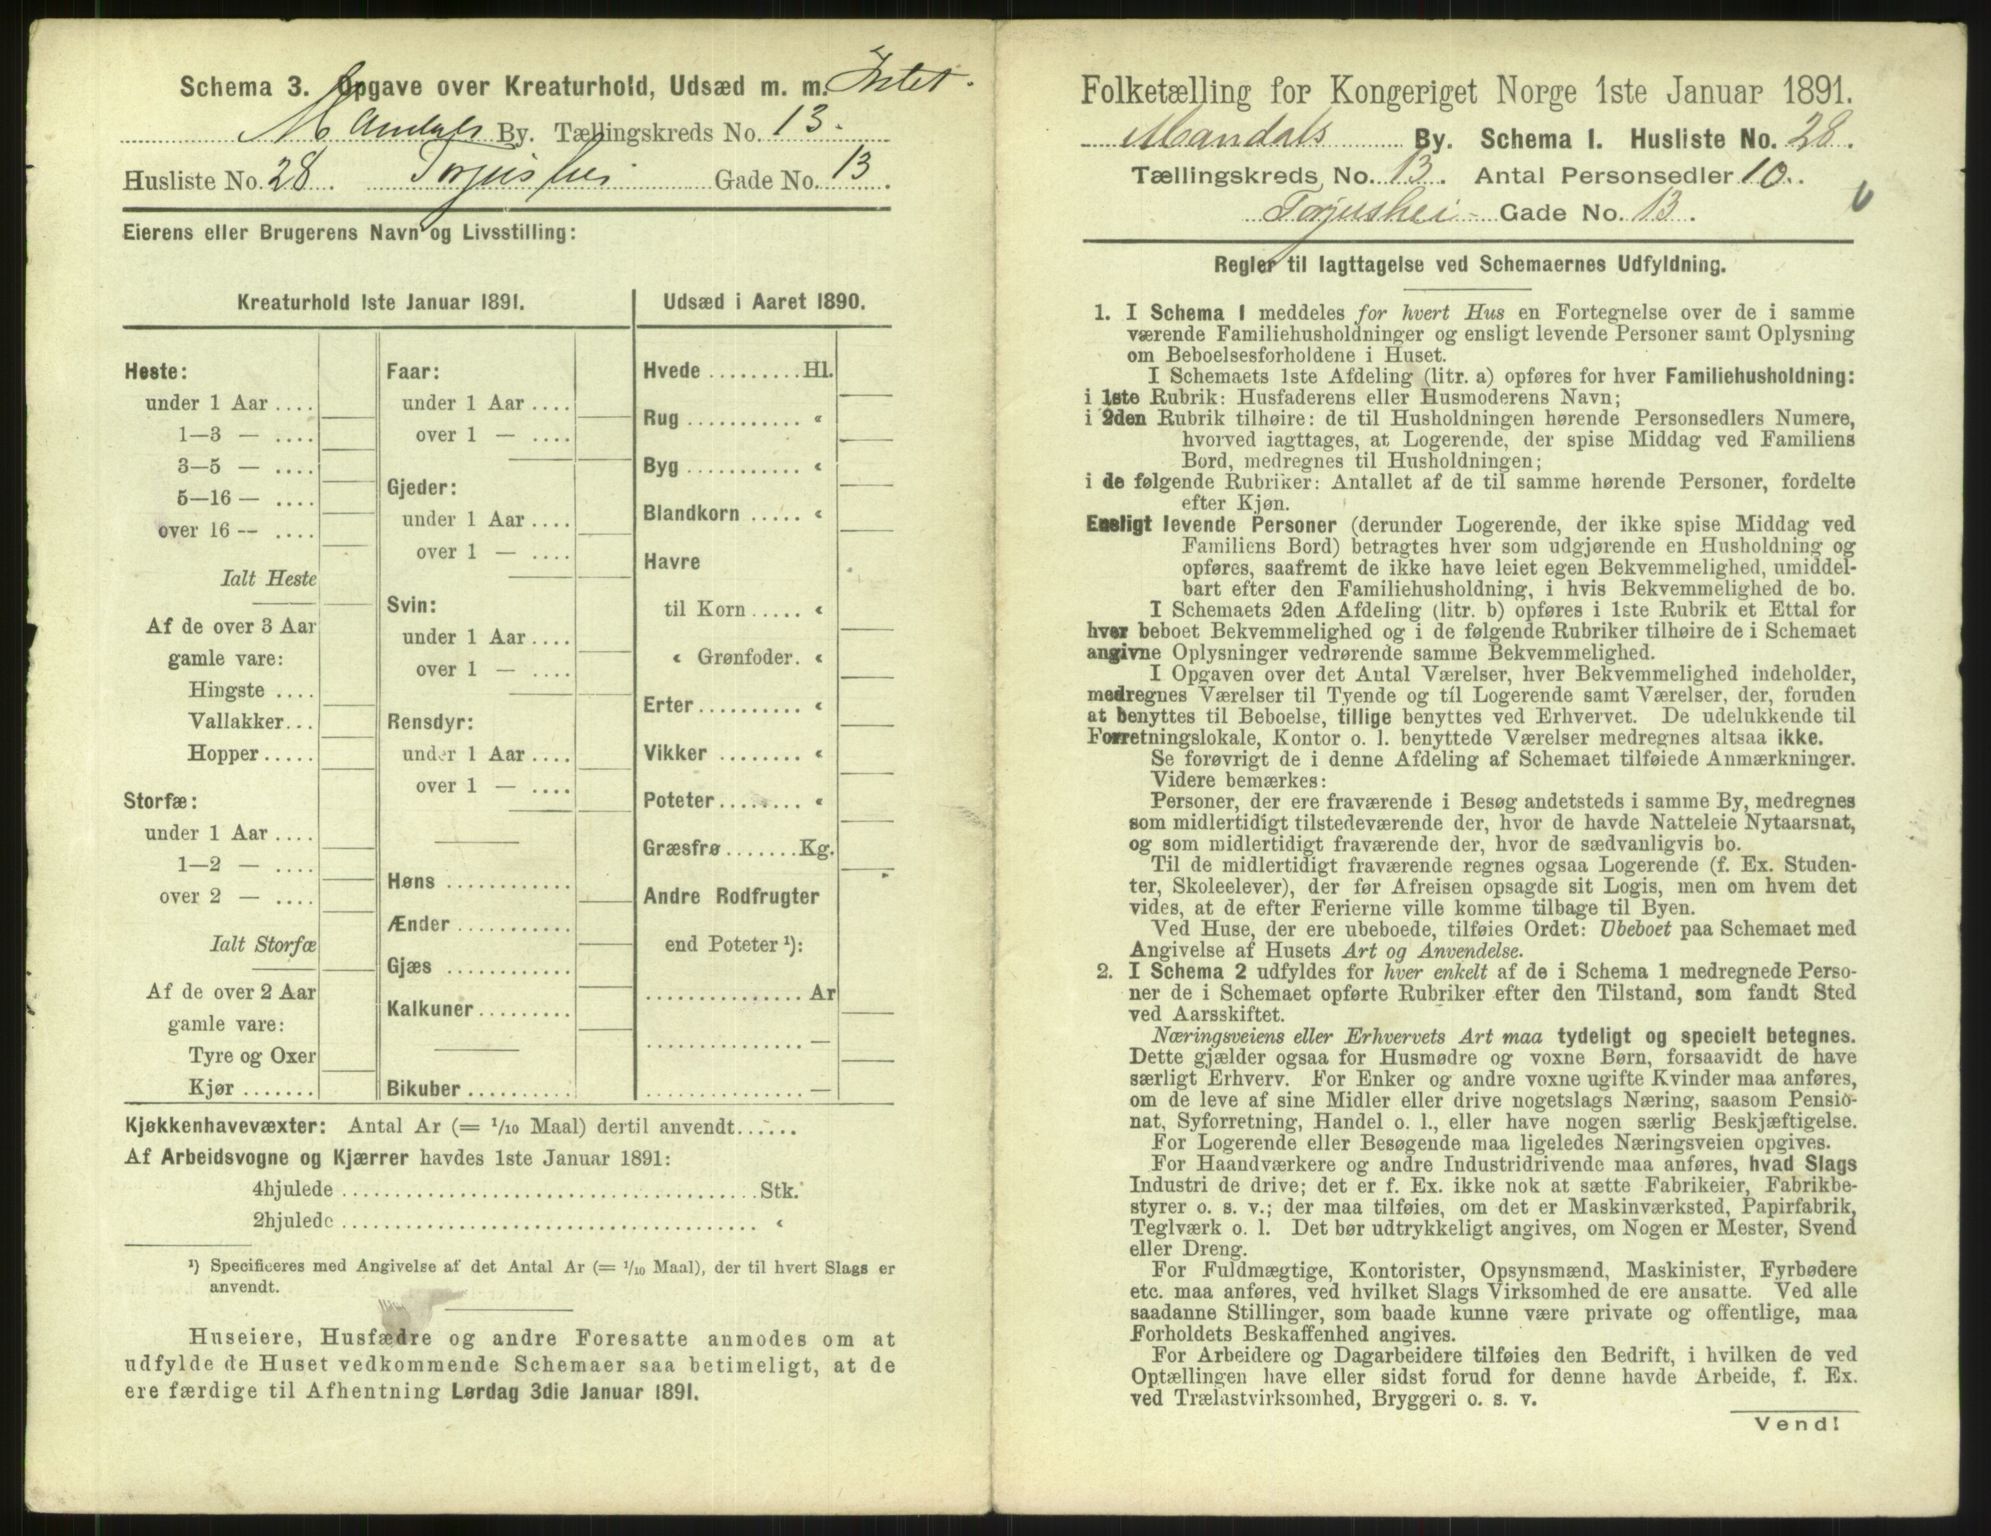 Schema 3. Opgave over Kreaturhold, Udsæd m. m. Intet.
Mandals By. Tællingskreds No. 13.
Husliste No. 28. Torjushei Gade No. 13.
Eierens eller Brugerens Navn og Livsstilling:
Kreaturhold 1ste Januar 1891.
Heste:
under 1 Aar ....
1—3 — ....
3—5 — ....
5—16 — ....
over 16 — ....
Ialt Heste
Af de over 3 Aar
gamle vare:
Hingste ....
Vallakker...
Hopper.....
Storfæ:
under 1 Aar ....
1—2 — ....
over 2 — ....
Ialt Storfæ
Af de over 2 Aar
gamle vare:
Tyre og Oxer
Kjør .......
Faar:
under 1 Aar ....
over 1 — ....
Gjeder:
under 1 Aar ....
over 1 — ....
Svin:
under 1 Aar ....
over 1 — ....
Rensdyr:
under 1 Aar ....
over 1 — ....
Høns ............
Ænder ...........
Gjæs ............
Kalkuner.........
Bikuber ..........
Udsæd i Aaret 1890.
Hvede .........Hl.
Rug ........... «
Byg ........... «
Blandkorn ..... «
Havre
til Korn ..... «
« Grønfoder. «
Erter.......... «
Vikker ........ «
Poteter........ «
Græsfrø.......Kg.
Andre Rodfrugter
end Poteter ¹):
............... Ar
............... —
............... —
Kjøkkenhavevæxter: Antal Ar (= 1/10 Maal) dertil anvendt......
Af Arbeidsvogne og Kjærrer havdes 1ste Januar 1891:
4hjulede ........................................Stk.
2hjulede ........................................ «
¹) Specificeres med Angivelse af det Antal Ar (= 1/10 Maal), der til hvert Slags er
anvendt.
Huseiere, Husfædre og andre Foresatte anmodes om at
udfylde de Huset vedkommende Schemaer saa betimeligt, at de
ere færdige til Afhentning Lørdag 3die Januar 1891.
Folketælling for Kongeriget Norge 1ste Januar 1891.
Mandals By. Schema 1. Husliste No. 28.
Tællingskreds No. 13. Antal Personsedler 10.
Torjushei Gade No. 13.
Regler til Iagttagelse ved Schemaernes Udfyldning.
1. I Schema 1 meddeles for hvert Hus en Fortegnelse over de i samme
værende Familiehusholdninger og ensligt levende Personer samt Oplysning
om Beboelsesforholdene i Huset.
I Schemaets 1ste Afdeling (litr. a) opføres for hver Familiehusholdning:
i 1ste Rubrik: Husfaderens eller Husmoderens Navn;
i 2den Rubrik tilhøire: de til Husholdningen hørende Personsedlers Numere,
hvorved iagttages, at Logerende, der spise Middag ved Familiens
Bord, medregnes til Husholdningen;
i de følgende Rubriker: Antallet af de til samme hørende Personer, fordelte
efter Kjøn.
Ensligt levende Personer (derunder Logerende, der ikke spise Middag ved
Familiens Bord) betragtes hver som udgjørende en Husholdning og
opføres, saafremt de ikke have leiet egen Bekvemmelighed, umiddel-
bart efter den Familiehusholdning, i hvis Bekvemmelighed de bo.
I Schemaets 2den Afdeling (litr. b) opføres i 1ste Rubrik et Ettal for
hver beboet Bekvemmelighed og i de følgende Rubriker tilhøire de i Schemaet
angivne Oplysninger vedrørende samme Bekvemmelighed.
I Opgaven over det Antal Værelser, hver Bekvemmelighed indeholder,
medregnes Værelser til Tyende og til Logerende samt Værelser, der, foruden
at benyttes til Beboelse, tillige benyttes ved Erhvervet. De udelukkende til
Forretningslokale, Kontor o. l. benyttede Værelser medregnes altsaa ikke.
Se forøvrigt de i denne Afdeling af Schemaet tilføiede Anmærkninger.
Videre bemærkes:
Personer, der ere fraværende i Besøg andetsteds i samme By, medregnes
som midlertidigt tilstedeværende der, hvor de havde Natteleie Nytaarsnat,
og som midlertidigt fraværende der, hvor de sædvanligvis bo.
Til de midlertidigt fraværende regnes ogsaa Logerende (f. Ex. Studen-
ter, Skoleelever), der før Afreisen opsagde sit Logis, men om hvem det
vides, at de efter Ferierne ville komme tilbage til Byen.
Ved Huse, der ere ubeboede, tilføies Ordet: Ubeboet paa Schemaet med
Angivelse af Husets Art og Anvendelse.
2. I Schema 2 udfyldes for hver enkelt af de i Schema 1 medregnede Perso-
ner de i Schemaet opførte Rubriker efter den Tilstand, som fandt Sted
ved Aarsskiftet.
Næringsveiens eller Erhvervets Art maa tydeligt og specielt betegnes.
Dette gjælder ogsaa for Husmødre og voxne Børn, forsaavidt de have
særligt Erhverv. For Enker og andre voxne ugifte Kvinder maa anføres,
om de leve af sine Midler eller drive nogetslags Næring, saasom Pensio-
nat, Syforretning, Handel o. l., eller have nogen særlig Beskjæftigelse.
For Logerende eller Besøgende maa ligeledes Næringsveien opgives.
For Haandværkere og andre Industridrivende maa anføres, hvad Slags
Industri de drive; det er f. Ex. ikke nok at sætte Fabrikeier, Fabrikbe-
styrer o. s. v.; der maa tilføies, om det er Maskinværksted, Papirfabrik,
Teglværk o. l. Det bør udtrykkeligt angives, om Nogen er Mester, Svend
eller Dreng.
For Fuldmægtige, Kontorister, Opsynsmænd, Maskinister, Fyrbødere
etc. maa anføres, ved hvilket Slags Virksomhed de ere ansatte. Ved alle
saadanne Stillinger, som baade kunne være private og offentlige, maa
Forholdets Beskaffenhed angives.
For Arbeidere og Dagarbeidere tilføies den Bedrift, i hvilken de ved
Optællingen have eller sidst forud for denne havde Arbeide, f. Ex.
ved Trælastvirksomhed, Bryggeri o. s. v.
Vend!